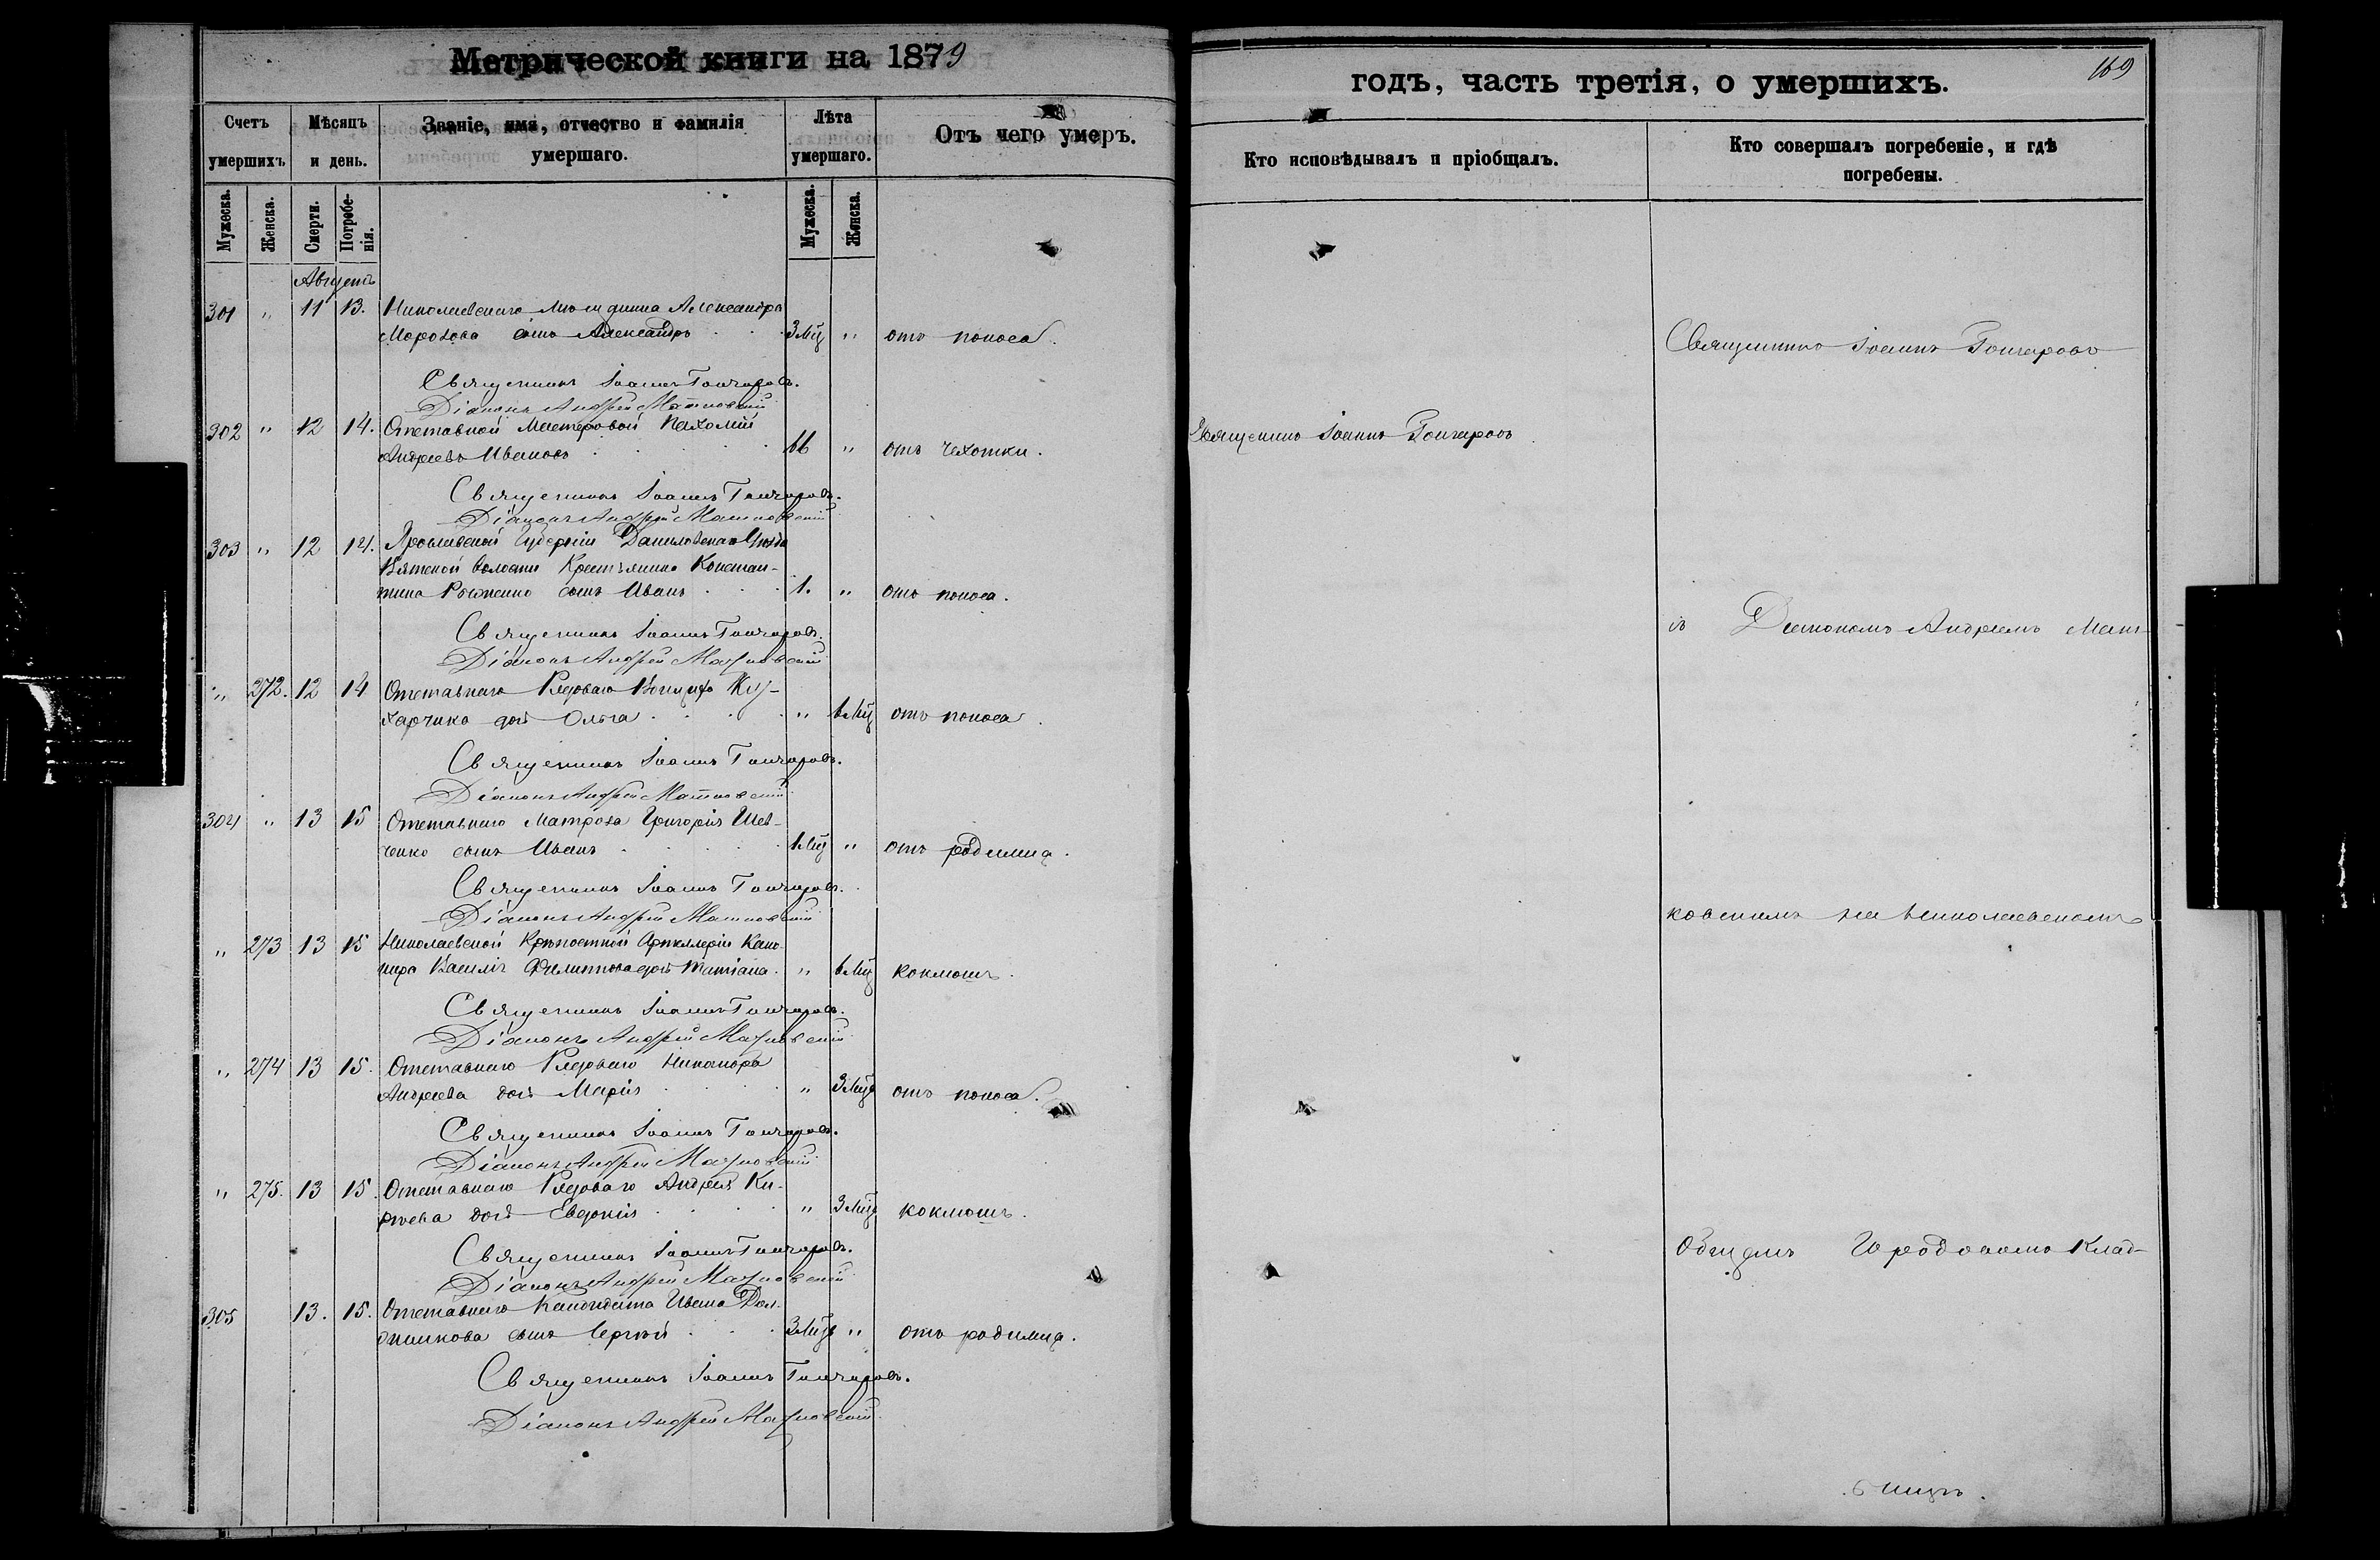 Метрической книги на 1879
Счетъ умершихъ.
Мѣсяцъ и день.
Званіе, имя, отчество и фамилія умершаго.
Лѣта умершаго.
Отъ чего умеръ.
Мужеска. Женска. Смерти. Погребенія. Мужеска. Женска.
Августъ
301 " 11 13. Николаевскаго мѣщанина Александра
Морозова сынъ Александръ 3 мц " отъ поноса.
Священникъ Іоаннъ Гончаровъ.
Діаконъ Андрей Матковскій
302 " 12 14. Отставной Мастеровой Пахомій
Андреевъ Ивановъ 66 " отъ чехотки.
Священникъ Іоаннъ Гончаровъ.
Діаконъ Андрей Матковскій
303 " 12 14. Ярославской Губерніи Даниловскаго Уѣзда
Вятской волости Крестьянина Констан-
тина сынъ Иванъ 1. " отъ поноса.
Священникъ Іоаннъ Гончаровъ.
Діаконъ Андрей Матковскій
" 272. 12 14 Отставнаго Рядоваго
дочь Ольга " мц отъ поноса.
Священникъ Іоаннъ Гончаровъ.
Діаконъ Андрей Матковскій
304 " 13 15 Отставнаго Матроза Григорія Шев-
ченко сынъ Иванъ мц " отъ родимца.
Священникъ Іоаннъ Гончаровъ.
Діаконъ Андрей Матковскій
" 273 13 15 Николаевской Крѣпостной Артиллеріи Кано-
нира Василія Филиппова дочь Татіана. " мц коклюшъ.
Священникъ Іоаннъ Гончаровъ.
Діаконъ Андрей Матковскій
" 274 13 15. Отставнаго Рядоваго Никанора
Андреева дочь Марія " 3 мца отъ поноса.
Священникъ Іоаннъ Гончаровъ.
Діаконъ Андрей Матковскій
" 275. 13 15. Отставнаго Рядоваго Андрея
дочь Евдокія " 3 мца коклюшъ.
Священникъ Іоаннъ Гончаровъ.
Діаконъ Андрей Матковскій
305 13. 15. Отставнаго Ивана
сынъ Сергѣй 3 мца " отъ родимца.
Священникъ Іоаннъ Гончаровъ.
Діаконъ Андрей Матковскій
169
годъ, часть третія, о умершихъ.
Кто исповѣдывалъ и пріобщалъ.
Кто совершалъ погребеніе, и гдѣ погребены.
Священникъ Іоаннъ Гончаровъ
Священникъ Іоаннъ Гончаровъ
съ Діакономъ Андреемъ Мат-
ковскимъ на Николаевскомъ
Общемъ Городскомъ Клад-
бищѣ.